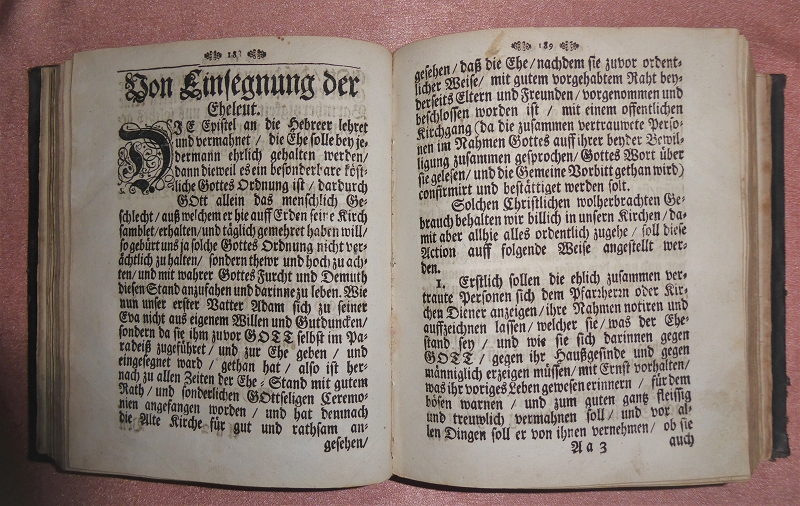 188
Von Einsegnung der
Eheleut.
DIE Epistel an die Hebreer lehret
und vermahnet / die Ehe solle bey je-
dermann ehrlich gehalten werden/
dann dieweil es ein besonderbare köst-
liche Gottes Ordnung ist / dardurch
GOtt allein das menschlich Ge-
schlecht / auß welchem er hie auff Erden seine Kirch
samblet/erhalten/und täglich gemehret haben will/
so gebürt uns ja solche Gottes Ordnung nicht ver-
ächtlich zu halten/ sondern thewr und hoch zu ach-
ten/ und mit wahrer Gottes Furcht und Demuth
diesen Stand anzufahen und darinne zu leben. Wie
nun unser erster Vatter Adam sich zu seiner
Eva nicht aus eigenem Willen und Gutduncken/
sondern da sie ihm zuvor GOTT selbst im Pa-
radeiß zugeführet / und zur Ehe geben / und
eingesegnet ward / gethan hat / also ist her-
nach zu allen Zeiten der Ehe-Stand mit gutem
Rath/ und sonderlichen GOttseligen Ceremo-
nien angefangen worden / und hat demnach
die Alte Kirche für gut und rathsam an-
gesehen/
189
gesehen / daß die Ehe / nachdem sie zuvor ordent-
licher Weise/ mit gutem vorgehabtem Raht bey-
derseits Eltern und Freunden/ vorgenommen und
beschlossen worden ist / mit einem offentlichen
Kirchgang (da die zusammen vertrauwete Perso-
nen im Nahmen Gottes auff ihrer beyder Bewil-
ligung zusammen gesprochen/ Gottes Wort über
sie gelesen/ und die Gemeine Vorbitt gethan wird)
confirmirt und bestättiget werden solt.
Solchen Christlichen wolherbrachten Ge-
brauch behalten wir billich in unsern Kirchen/ da-
mit aber allhie alles ordentlich zugehe / soll diese
Action auff folgende Weise angestellt wer-
den.
1. Erstlich sollen die ehlich zusammen ver-
traute Personen sich dem Pfarrherrn oder Kir-
chen Diener anzeigen/ ihre Nahmen notiren und
auffzeichnen lassen/ welcher sie / was der Ehe-
stand sey / und wie sie sich darinnen gegen
GOTT / gegen ihr Haußgesinde und gegen
männiglich erzeigen müssen/ mit Ernst vorhalten/
was ihr voriges Leben gewesen erinnern / für dem
bösen warnen / und zum guten gantz fleissig
und treuwlich vermahnen soll / und vor al-
len Dingen soll er von ihnen vernehmen / ob sie
Aa 3 auch